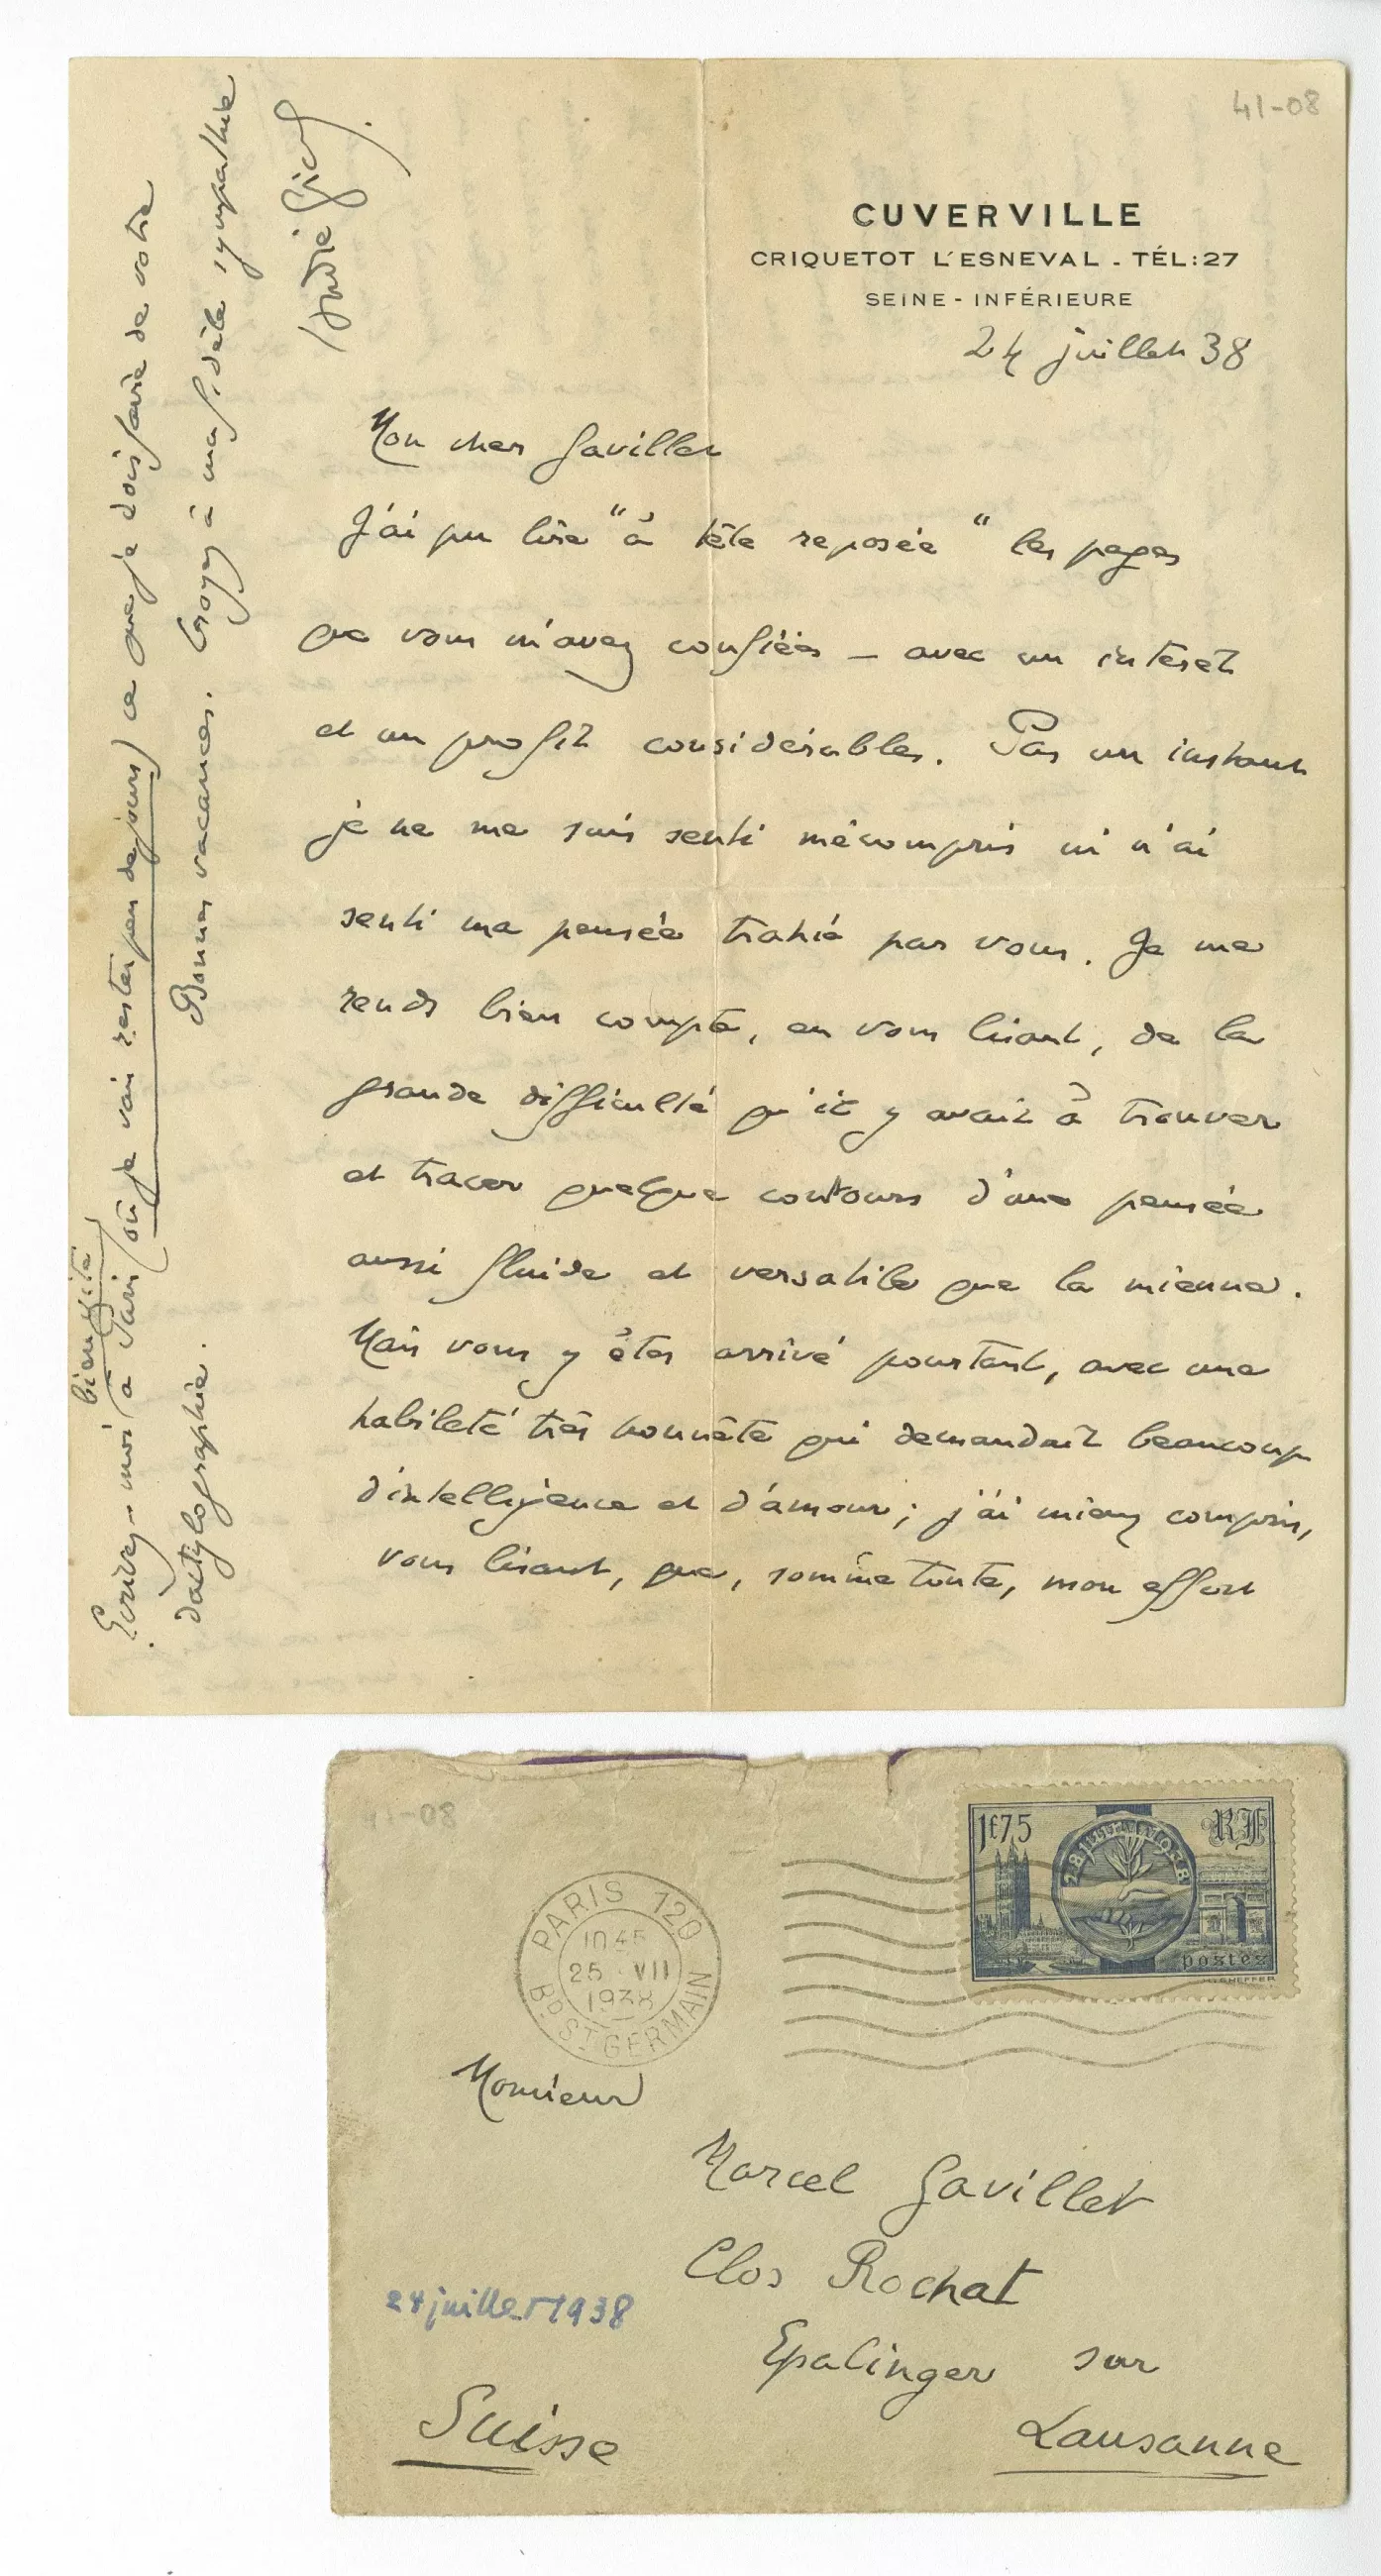 41-08
CUVERVILLE
CRIQUETOT L'ESNEVAL - TÉL:27
SEINE - INFÉRIEURE
24 juillet 38
Mon cher Gavillet
J'ai pu lire "à tête reposée" les pages
que vous m'avez confiées — avec un intérêt
et un profit considérables. Pas un instant
je ne me suis senti mécompris ni n'ai
senti ma pensée trahie par vous. Je me
rends bien compte, en vous lisant, de la
grande difficulté qu'il y avait à trouver
et tracer quelque contours d'une pensée
aussi fluide et versatile que la mienne.
Mais vous y êtes arrivé pourtant, avec une
habileté très honnête qui demandait beaucoup
d'intelligence et d'amour ; j'ai mieux compris,
vous lisant, que, somme toute, mon effort
bien vite
Ecrivez-moi à Paris (où je vais rester peu de jours) ce que je dois faire de votre
dactylographie. Bonnes vacances. Croyez à ma fidèle sympathie
André Gide
08
1f75 RF
28 JUIN 1938
postes
CHEFFER
PARIS 120
10 45
25 VII
1938
Bd ST GERMAIN
Monsieur
Marcel Gavillet
Clos Rochat
24 juillet 1938
Epalinges sur
Suisse
Lausanne